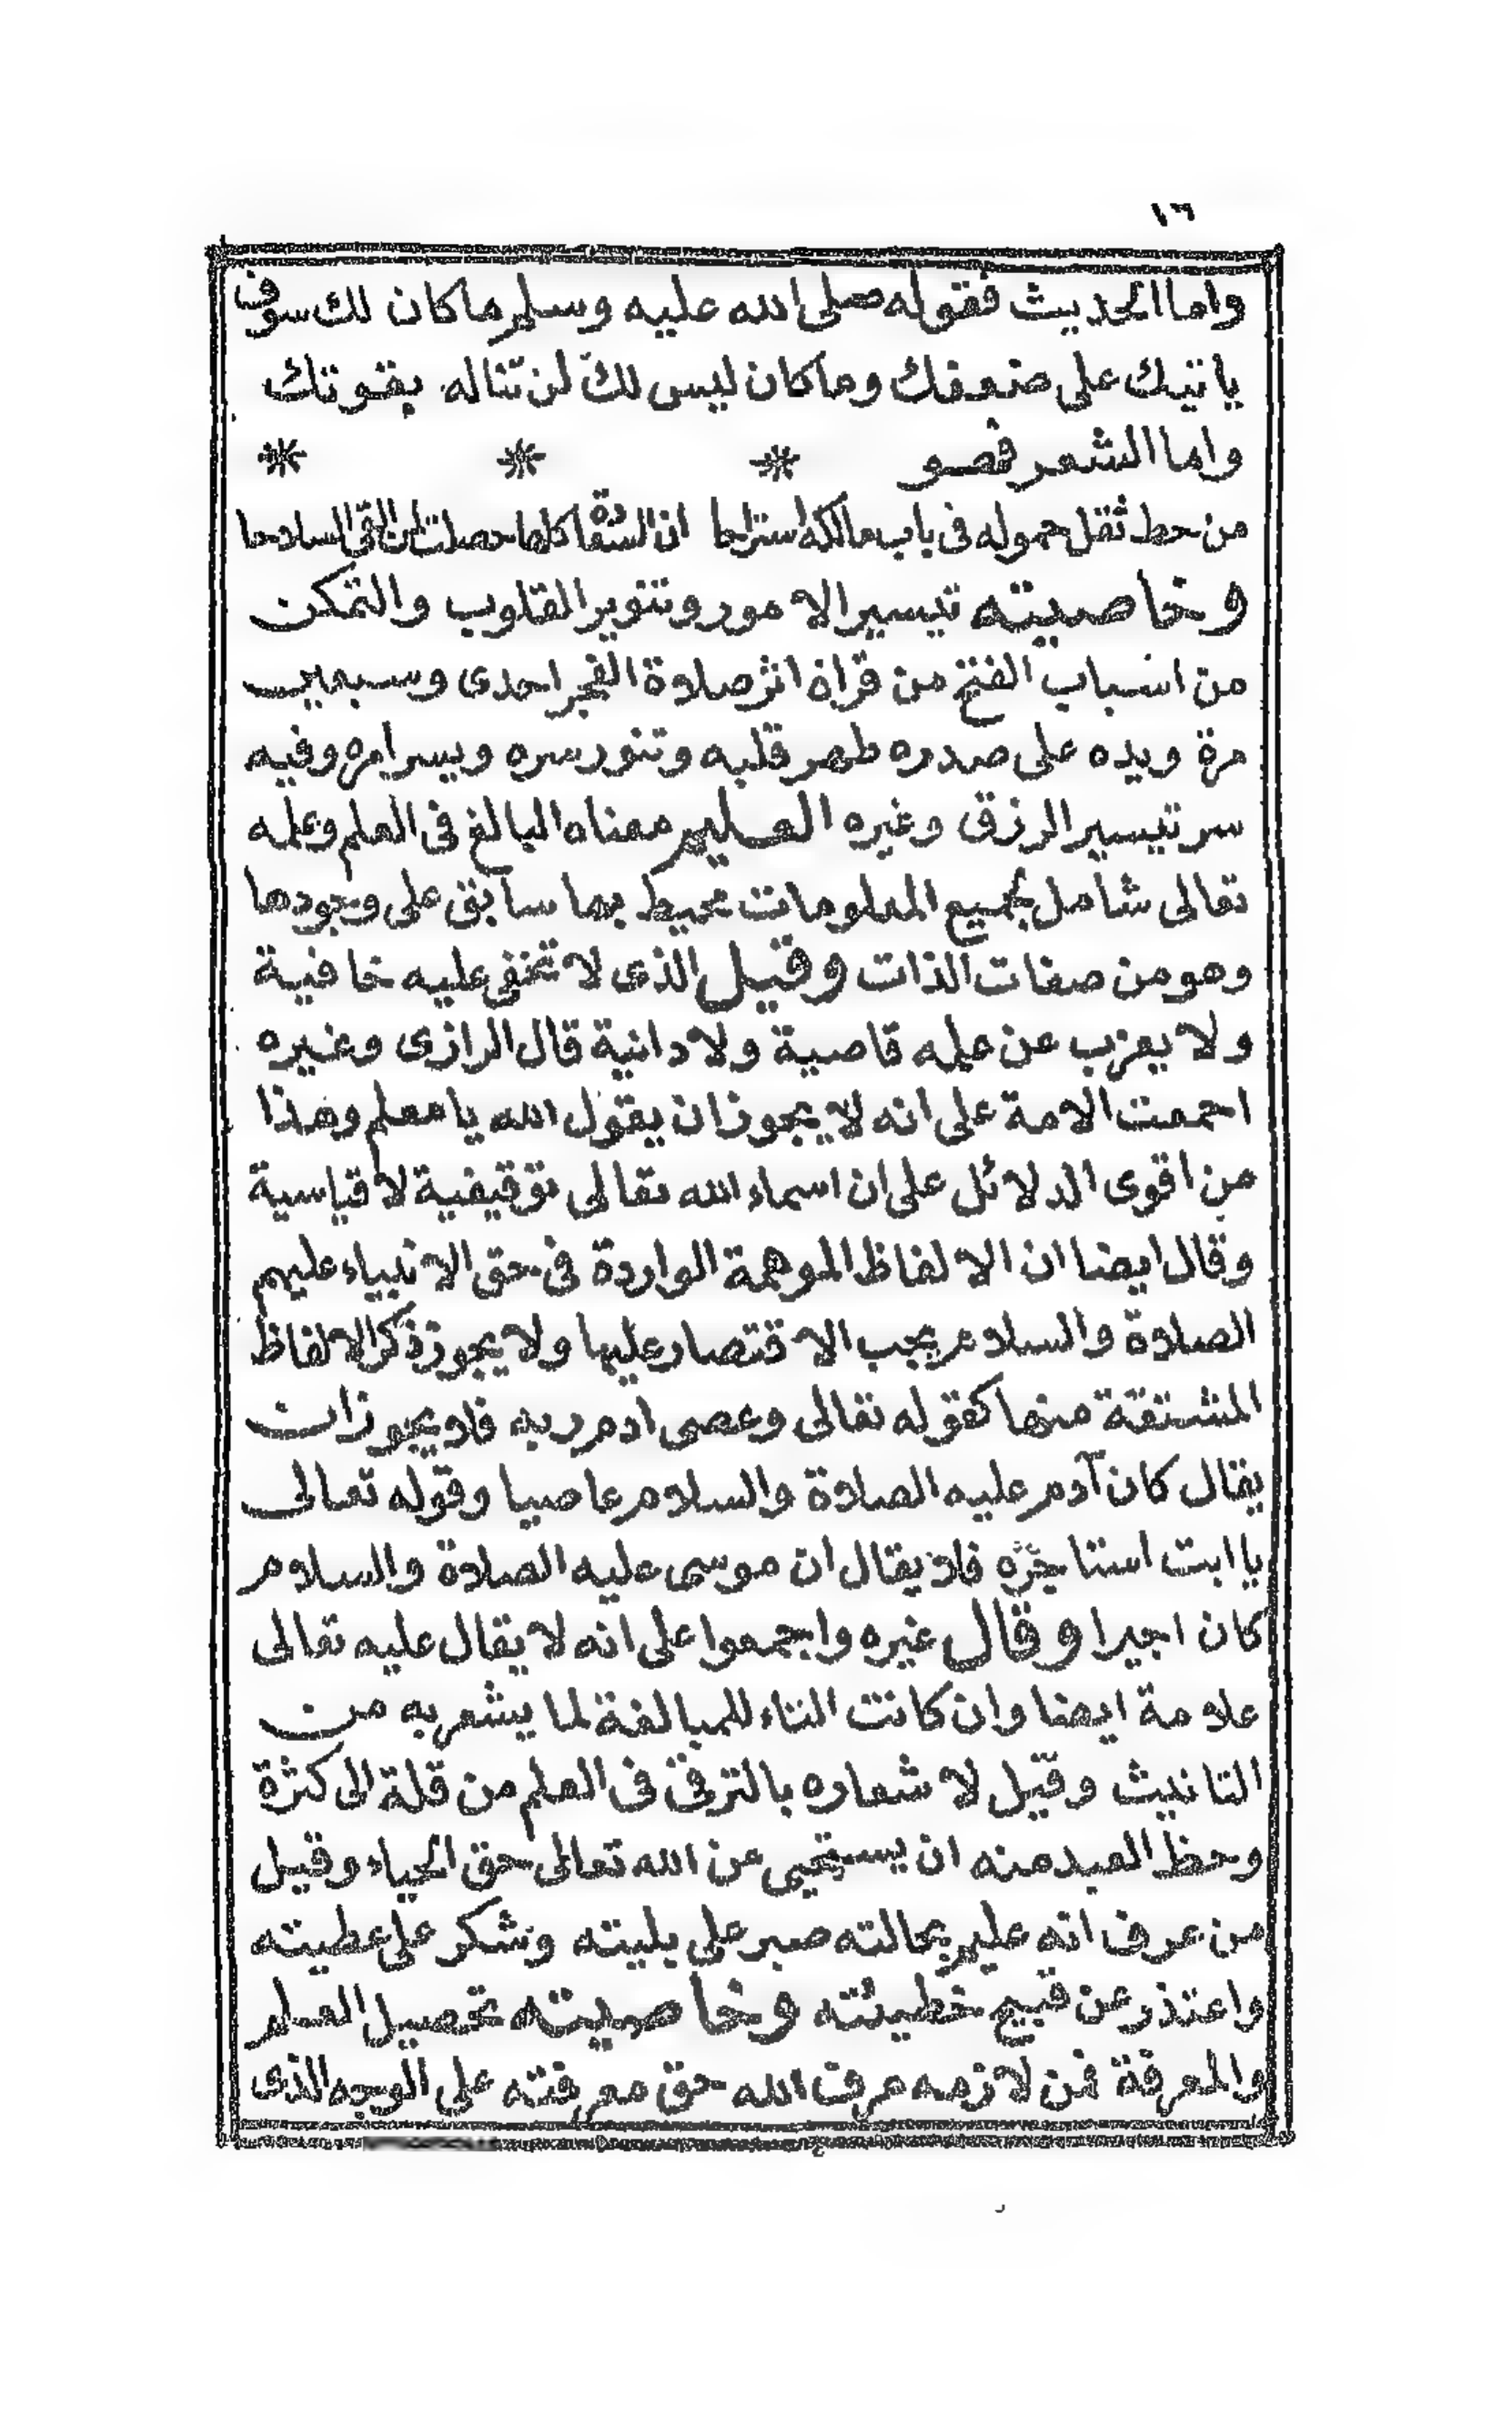 ١٦
واما الحديث فقوله صلى الله عليه وسلم ما كان لك سوف
ياتيك على ضعفك وما كان ليس لك لن تناله بقوتك
واما الشعر فهو
من حط ثقل حموله فى باب مالكه استراحا ان السعادة كلها حصلت لمن القى السلاحا
وخاصيته تيسير الامور وتنوير القلوب والتمكن
من اسباب الفتح من قراه اثر صلاة الفجر احدى وسبعين
مرة ويده على صدره طهر قلبه وتنور سره ويسر امره وفيه
سر تيسير الرزق وغيره العليم معناه البالغ فى العلم وعلمه
تعالى شامل لجميع المعلومات محيط بها سابق على وجودها
وهو من صفات الذات وقيل الذى لا تخفى عليه خافية
ولا يعزب عن علمه قاصية ولا دانية قال الرازى وغيره
اجمعت الامة على انه لا يجوز ان يقول الله يا معلم وهذا
من اقوى الدلائل على ان اسماء الله تعالى توقيفية لا قياسية
وقال ايضا ان الالفاظ الموهمة الواردة فى حق الانبياء عليهم
الصلاة والسلام يجب الاقتصار عليها ولا يجوز ذكر الالفاظ
المشتقة منها كقوله تعالى وعصى ادم ربه فلا يجوز ان
يقال كان آدم عليه الصلاة والسلام عاصيا وقوله تعالى
يا ابت استاجره فلا يقال ان موسى عليه الصلاة والسلام
كان اجيرا وقال غيره واجمعوا على انه لا يقال عليه تعالى
علامة ايضا وان كانت التاء للمبالغة لما يشعر به من
التانيث وقيل لاشعاره بالترقى فى العلم من قلة الى كثرة
وحظ العبد منه ان يستحيى من الله تعالى حق الحياء وقيل
من عرف انه عليم بحالته صبر على بليته وشكر على عطيته
واعتذر عن قبيح خطيئته وخاصيته تحصيل العلم
والمعرفة فمن لازمه عرف الله حق معرفته على الوجه الذى